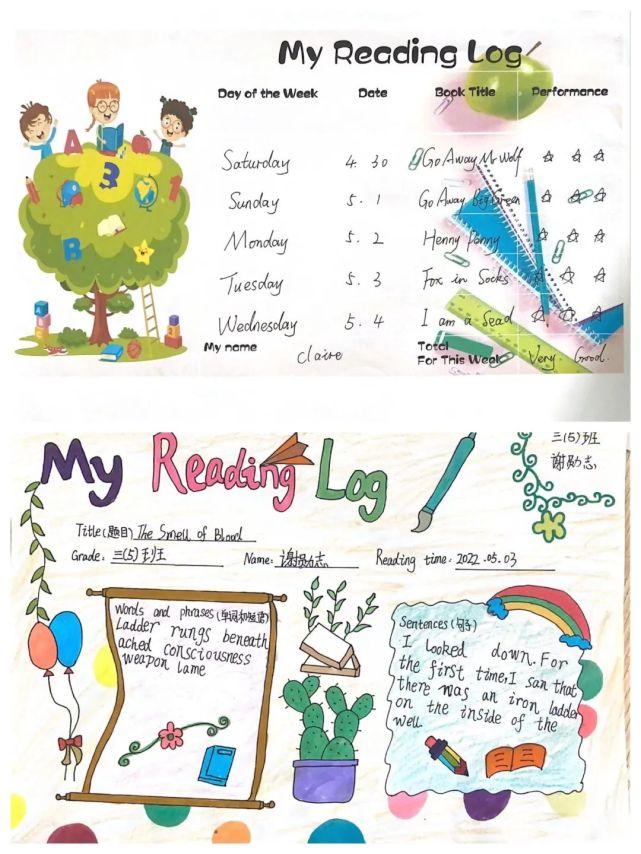 My Reading Log
Day of the Week Date Book Title Performance
Saturday 4.30 Go Away Mr Wolf
Sunday 5.1 Go Away Big Green
Monday 5.2 Henny Penny
Tuesday 5.3 Fox in Socks
Wednesday 5.4 I am a Sead
My name Claire
Total
For This Week Very Good.
A
3
1
B
My Reading Log
三(5)班
谢励志
Title(题目) The Smell of Blood
Grade: 三(5)班 Name: 谢励志 Reading time: 2022.05.03
words and phrases(单词和短语)
Ladder rungs beneath
ached consciousness
weapon lame
Sentences(句子)
I looked down. For
the first time, I san that
there was an iron ladder
on the inside of the
well